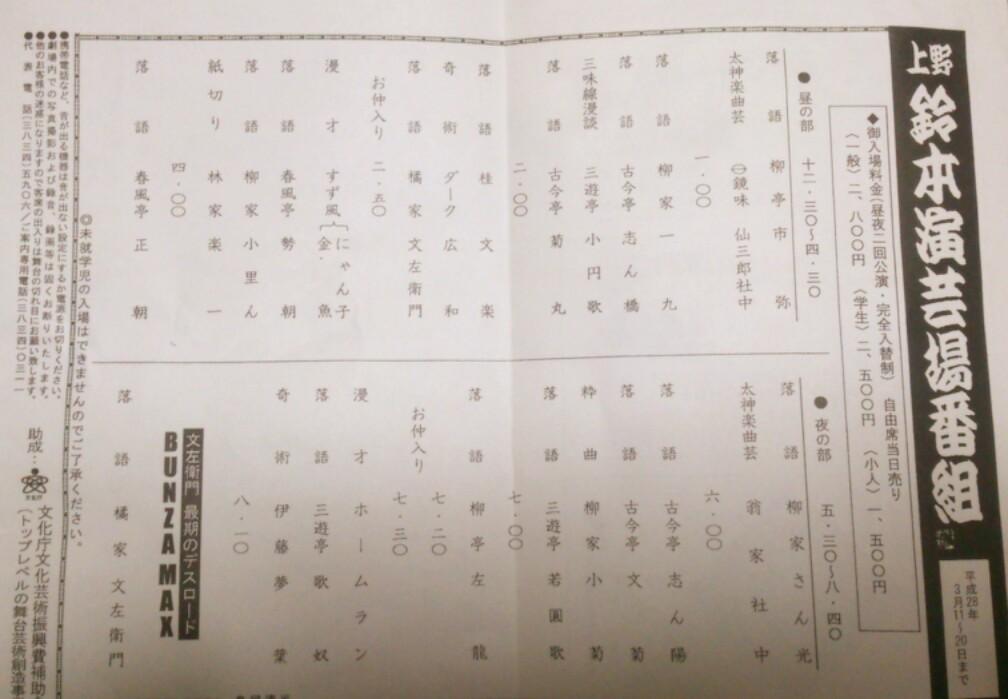 上野 鈴本演芸場番組
平成28年
3月11〜20日まで
◆御入場料金(昼夜二回公演・完全入替制) 自由席当日売り
〈一般〉二、八〇〇円 〈学生〉二、五〇〇円 〈小人〉一、五〇〇円
●昼の部 十二・三〇〜四・三〇
落語 柳亭市弥
太神楽曲芸 鏡味 仙三郎社中
一・〇〇
落語 柳家一九
落語 古今亭志ん橋
三味線漫談 三遊亭小円歌
落語 古今亭菊丸
二・〇〇
落語 桂文楽
奇術 ダーク広和
落語 橘家文左衛門
お仲入り 二・五〇
漫才 すず風 にゃん子 金魚
落語 春風亭勢朝
落語 柳家小里ん
紙切り 林家楽一
四・〇〇
落語 春風亭正朝
●夜の部 五・三〇〜八・四〇
落語 柳家さん光
太神楽曲芸 翁家社中
六・〇〇
落語 古今亭志ん陽
落語 古今亭文菊
粋曲 柳家小菊
落語 三遊亭若圓歌
七・〇〇
落語 柳亭左龍
七・二〇
お仲入り
七・三〇
漫才 ホームラン
落語 三遊亭歌奴
奇術 伊藤夢葉
八・一〇
文左衛門 最期のデスロード
BUNZA MAX
落語 橘家文左衛門
◎未就学児の入場はできませんのでご了承ください。
●携帯電話など、音が出る機器は音が出ない設定にするか電源をお切りください。
●劇場内での写真撮影および録音、録画等は固くお断りいたします。
●他のお客様の迷惑になりますので客席の出入りは舞台の切れ目にお願い致します。
●代表電話(三八三四)五九〇六/ご案内専用電話(三八三四)〇三一一
助成…
文化庁文化芸術振興費補助
(トップレベルの舞台芸術創造事